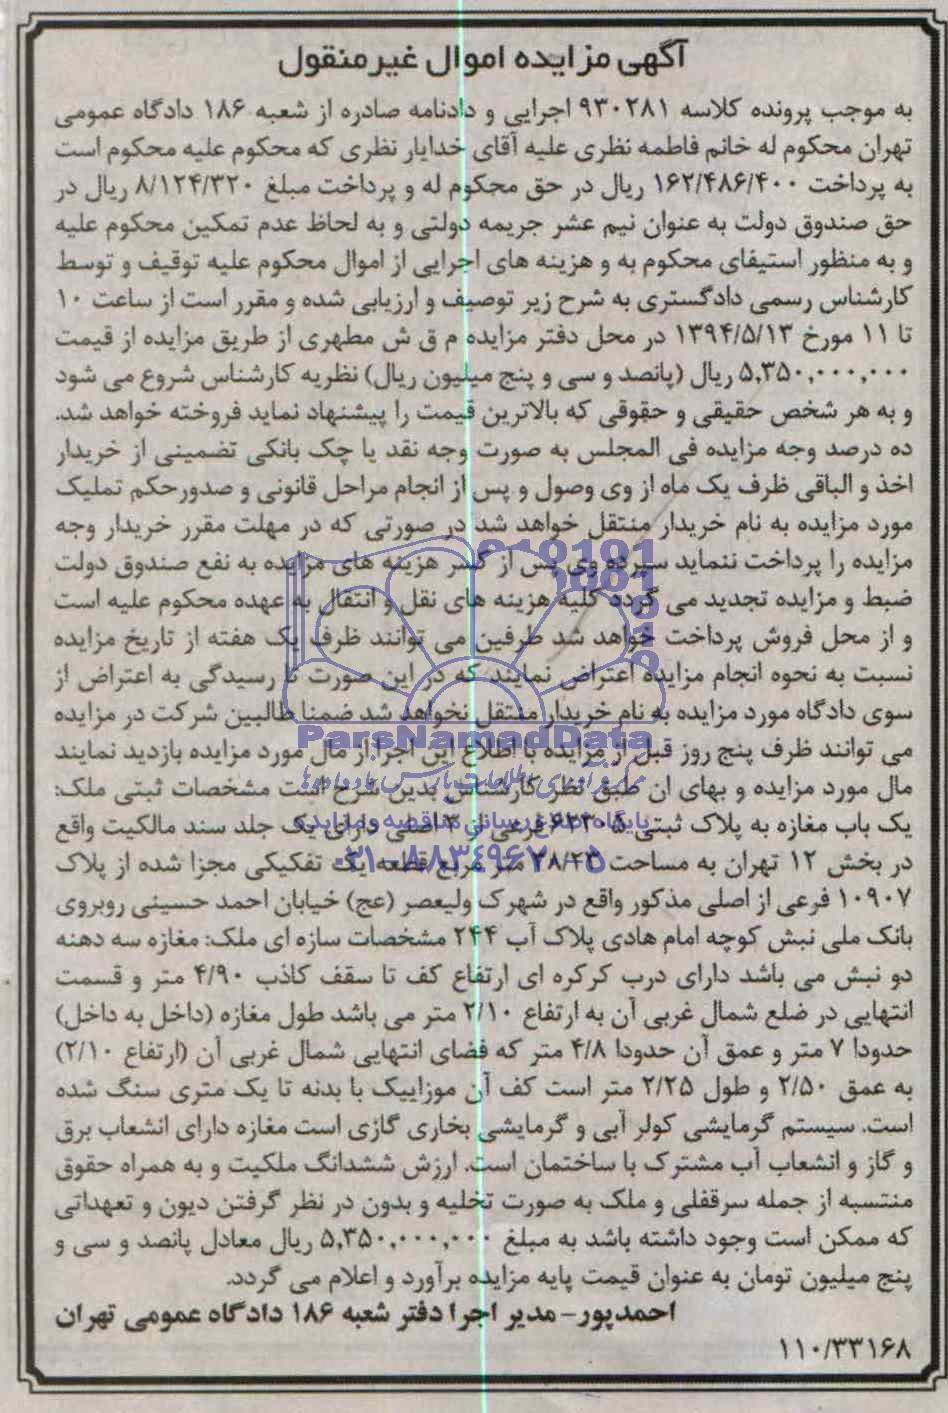 آگهی مزایده اموال غیرمنقول
به موجب پرونده کلاسه ۹۳۰۲۸۱ اجرایی و دادنامه صادره از شعبه ۱۸۶ دادگاه عمومی
تهران محکوم له خانم فاطمه نظری علیه آقای خدایار نظری که محکوم علیه محکوم است
به پرداخت ۱۶۲/۴۸۶/۴۰۰ ریال در حق محکوم له و پرداخت مبلغ ۸/۱۲۴/۳۲۰ ریال در
حق صندوق دولت به عنوان نیم عشر جریمه دولتی و به لحاظ عدم تمکین محکوم علیه
و به منظور استیفای محکوم به و هزینه های اجرایی از اموال محکوم علیه توقیف و توسط
کارشناس رسمی دادگستری به شرح زیر توصیف و ارزیابی شده و مقرر است از ساعت ۱۰
تا ۱۱ مورخ ۱۳۹۴/۵/۱۳ در محل دفتر مزایده م ق ش مطهری از طریق مزایده از قیمت
۵,۳۵۰,۰۰۰,۰۰۰ ریال (پانصد و سی و پنج میلیون ریال) نظریه کارشناس شروع می شود
و به هر شخص حقیقی و حقوقی که بالاترین قیمت را پیشنهاد نماید فروخته خواهد شد.
ده درصد وجه مزایده فی المجلس به صورت وجه نقد یا چک بانکی تضمینی از خریدار
اخذ و الباقی ظرف یک ماه از وی وصول و پس از انجام مراحل قانونی و صدورحکم تملیک
مورد مزایده به نام خریدار منتقل خواهد شد در صورتی که در مهلت مقرر خریدار وجه
مزایده را پرداخت ننماید سپرده وی پس از کسر هزینه های مزایده به نفع صندوق دولت
ضبط و مزایده تجدید می گردد کلیه هزینه های نقل و انتقال به عهده محکوم علیه است
و از محل فروش پرداخت خواهد شد طرفین می توانند ظرف یک هفته از تاریخ مزایده
نسبت به نحوه انجام مزایده اعتراض نمایند که در این صورت تا رسیدگی به اعتراض از
سوی دادگاه مورد مزایده به نام خریدار منتقل نخواهد شد ضمنا طالبین شرکت در مزایده
ParsNamadData
می توانند ظرف پنج روز قبل از مزایده با اطلاع این اجرا از مال مورد مزایده بازدید نمایند
مال مورد مزایده و بهای ان طبق نظر کارشناس بدین شرح است مشخصات ثبتی ملک:
یک باب مغازه به پلاک ثبتی فرعی از ۳ اصلی دارای یک جلد سند مالکیت واقع
۰۲۱-۸۸۳۴۹۶۷۰-۵
در بخش ۱۲ تهران به مساحت ۲۸/۲۳ متر مربع قطعه یک تفکیکی مجزا شده از پلاک
۱۰۹۰۷ فرعی از اصلی مذکور واقع در شهرک ولیعصر (عج) خیابان احمد حسینی روبروی
بانک ملی نبش کوچه امام هادی پلاک آب ۲۴۴ مشخصات سازه ای ملک: مغازه سه دهنه
دو نبش می باشد دارای درب کرکره ای ارتفاع کف تا سقف کاذب ۴/۹۰ متر و قسمت
انتهایی در ضلع شمال غربی آن به ارتفاع ۲/۱۰ متر می باشد طول مغازه (داخل به داخل)
حدودا ۷ متر و عمق آن حدودا ۴/۸ متر که فضای انتهایی شمال غربی آن (ارتفاع ۲/۱۰)
به عمق ۲/۵۰ و طول ۲/۲۵ متر است کف آن موزاییک با بدنه تا یک متری سنگ شده
است. سیستم گرمایشی کولر آبی و گرمایشی بخاری گازی است مغازه دارای انشعاب برق
و گاز و انشعاب آب مشترک با ساختمان است. ارزش ششدانگ ملکیت و به همراه حقوق
منتسبه از جمله سرقفلی و ملک به صورت تخلیه و بدون در نظر گرفتن دیون و تعهداتی
که ممکن است وجود داشته باشد به مبلغ ۵,۳۵۰,۰۰۰,۰۰۰ ریال معادل پانصد و سی و
پنج میلیون تومان به عنوان قیمت پایه مزایده برآورد و اعلام می گردد.
احمدپور- مدیر اجرا دفتر شعبه ۱۸۶ دادگاه عمومی تهران
۱۱۰/۳۳۱۶۸